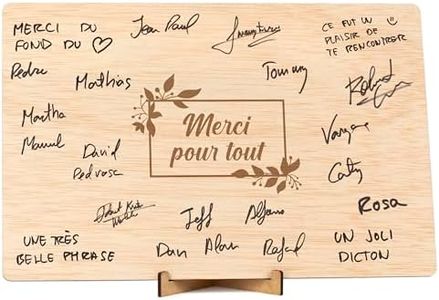 MERCI DU
FOND DU
Jean Paul
CE FUT UN
PLAISIR DE
TE RENCONTRER
Pedro
Mathias
Tommy
Robert
Martha
Manuel
David
Pedrosa
Merci
pour tout
Vanyane
Caty
Rosa
Jeff
Alfonso
UNE TRÈS
BELLE PHRASE
Dan
Alan
Rafael
UN JOLI
DICTON